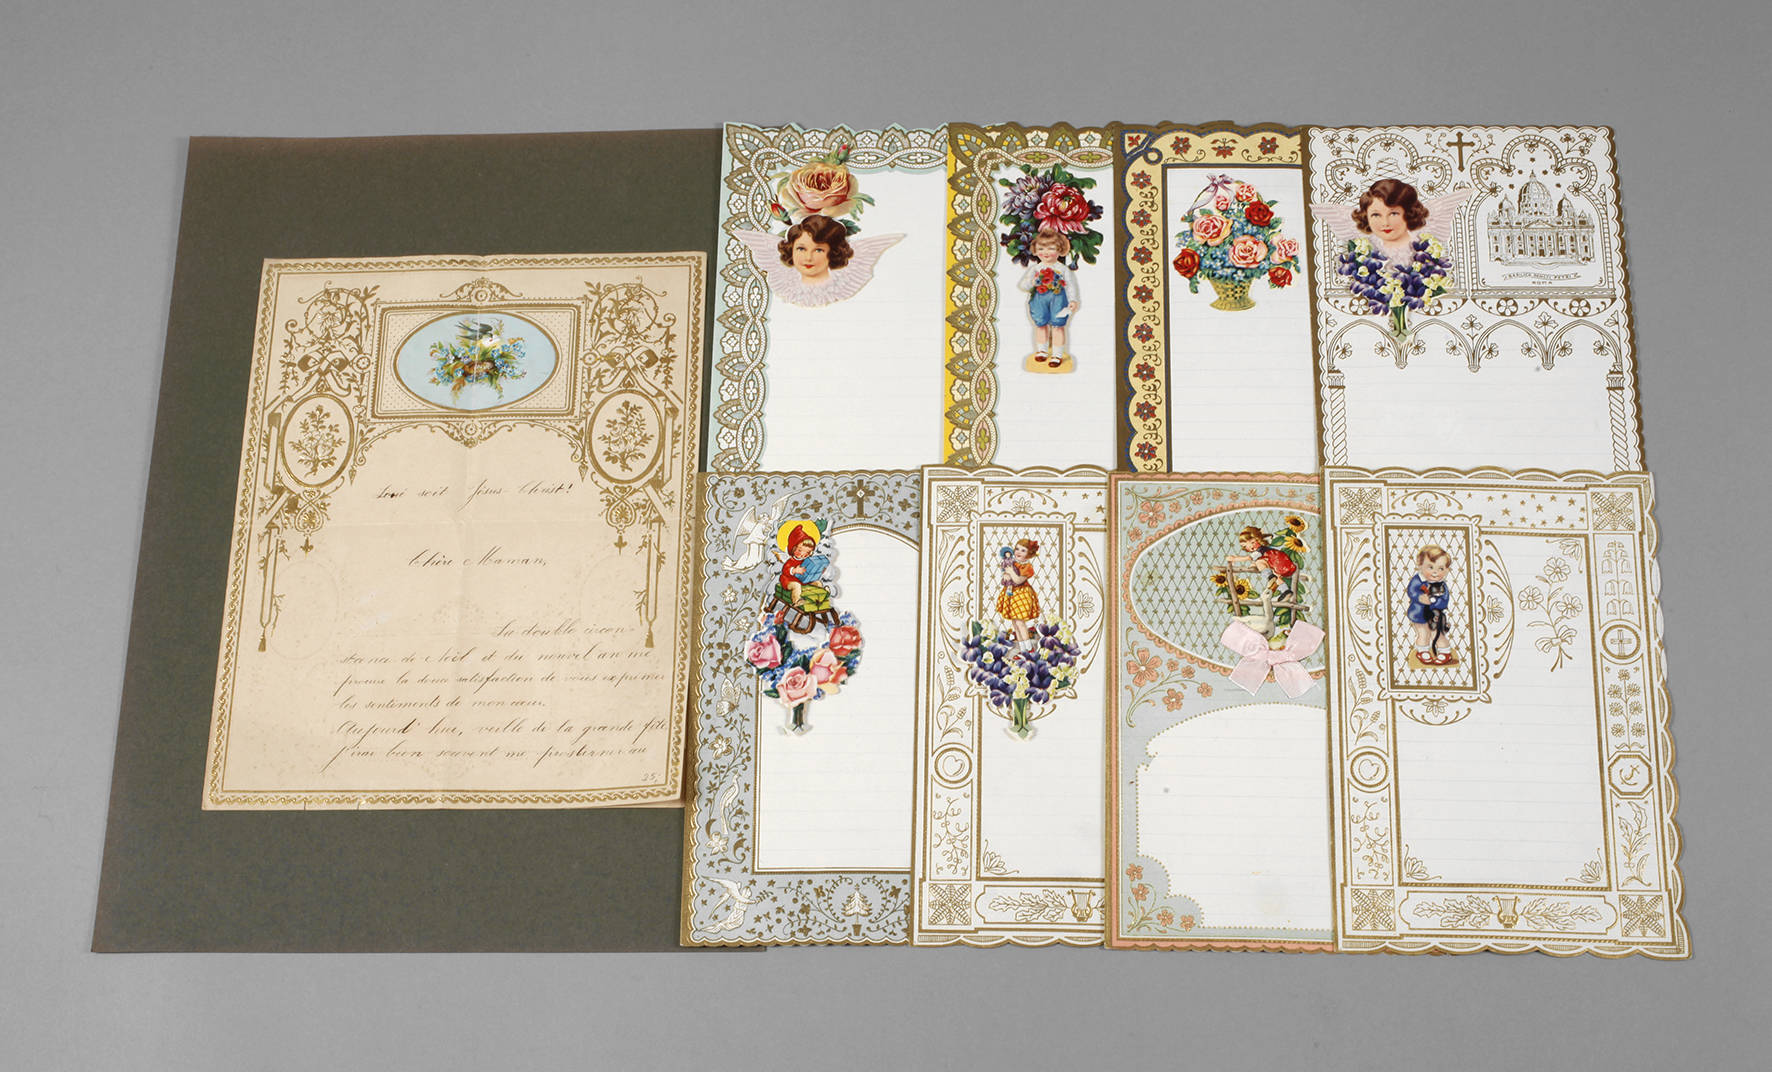 Loué soit Jésus-Christ!
Chère Maman,
La double circon-
stance de Noël et du nouvel an me
procure la douce satisfaction de vous exprimer
les sentiments de mon cœur.
Aujourd'hui, veille de la grande fête,
j'irai bien souvent me prosterner au
25,-
BASILICA SANCTI PETRI
ROMA